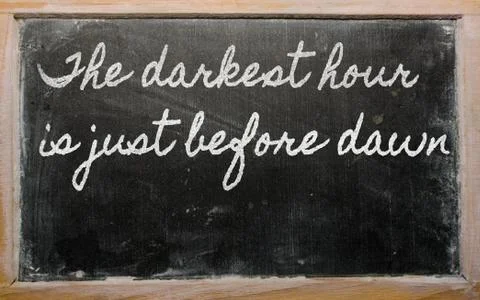 The darkest hour
is just before dawn